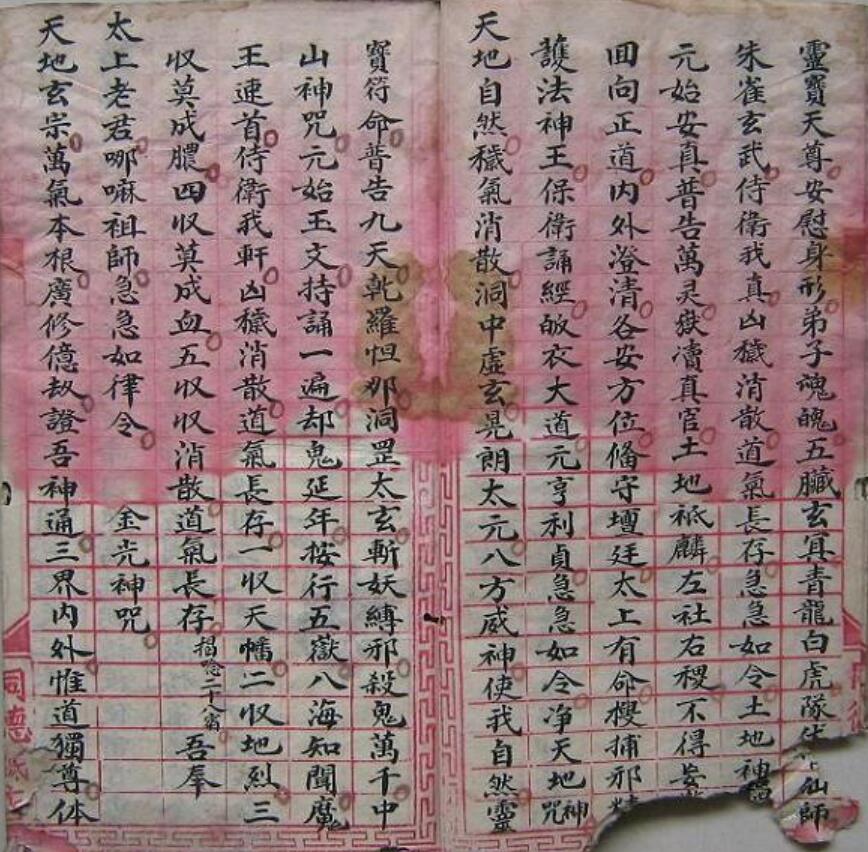 靈寶天尊安慰身形弟子魂魄五臟玄冥青龍白虎隊仗仙師
朱雀玄武侍衛我真凶穢消散道氣長存急急如令土地神
元始安真普告萬灵嶽瀆真官土地祗麟左社右稷不得
囬向正道内外澄清各安方位俻守壇廷太上有命搜捕邪精
護法神王保衛誦經皈衣大道元亨利貞急急如令净天地神咒
天地自然穢氣消散洞中虛玄晃朗太元八方威神使我自然靈
寶符命普告九天乾羅怛那洞罡太玄斬妖縛邪殺鬼萬千中
山神咒元始玉文持誦一遍却鬼延年按行五嶽八海知聞魔
王速首侍衛我軒凶穢消散道氣長存一収天幡二収地烈三
収莫成膿四収莫成血五収収消散道氣長存揭唸二十八宿吾羣
太上老君哪嘛祖師急急如律令 金光神咒
天地玄宗萬氣本根廣修億劫證吾神通三界内外惟道獨尊体
同德